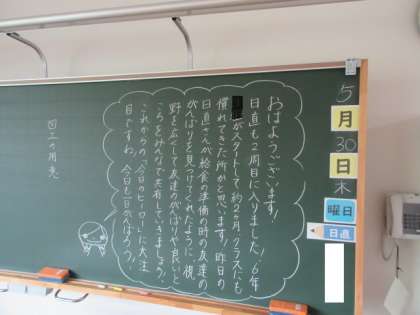 おはようございます!
日直も2周目に入りました!6年
がスタートして、約2ヶ月、クラスにも
慣れてきた所かと思います!昨日の
日直さんが給食の準備の時の友達の
がんばりを見つけてくれたように、視
野を広くして友達のがんばりや良いと
ころをみんなで共有していきましょう。
これからの「今日のヒーロー」に大注
目ですね!今日も1日がんばろう!
5
月
30
日
木
曜日
日直